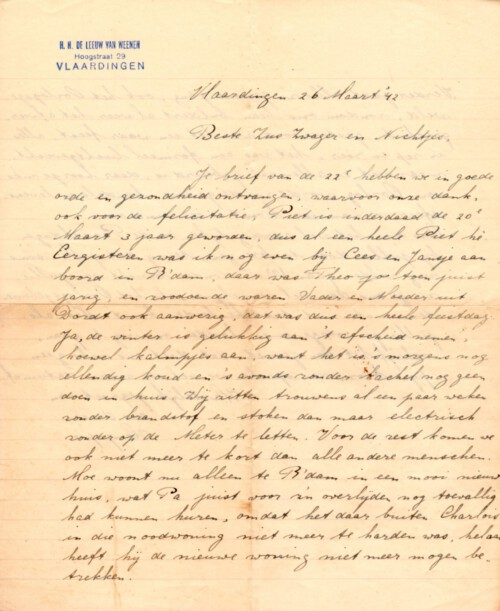 H. H. DE LEEUW VAN WEENEN
Hoogstraat 29
VLAARDINGEN
Vlaardingen 26 Maart '42
Beste Zus Zwager en Nichtjes.
Je brief van de 22e hebben we in goede
orde en gezondheid ontvangen, waarvoor onze dank,
ook voor de felicitatie. Piet is inderdaad de 20e
Maart 3 jaar geworden, dus al een heele Piet hé.
Eergisteren was ik nog even bij Cees en Jansje aan
boord in R'dam, daar was Theo toen juist
jarig, en zoodoende waren Vader en Moeder uit
Dordt ook aanwezig, dat was dus een heele feestdag
Ja, de winter is gelukkig aan 't afscheid nemen,
hoewel kalmpjes aan, want het is 's morgens nog
ellendig koud en 's avonds zonder kachel nog geen
doen in huis. Wij zitten trouwens al een paar weken
zonder brandstof en stoken dan maar electrisch
zonder op de Meter te letten. Voor de rest komen we
ook niet meer te kort dan alle andere menschen.
Moe woont nu alleen te R'dam in een mooi nieuw
huis, wat Pa juist voor zn overlijden nog toevallig
had kunnen huren, omdat het daar buiten Charlois
in die noodwoning niet meer te harden was, helaas
heeft hij de nieuwe woning niet meer mogen be-
trekken.